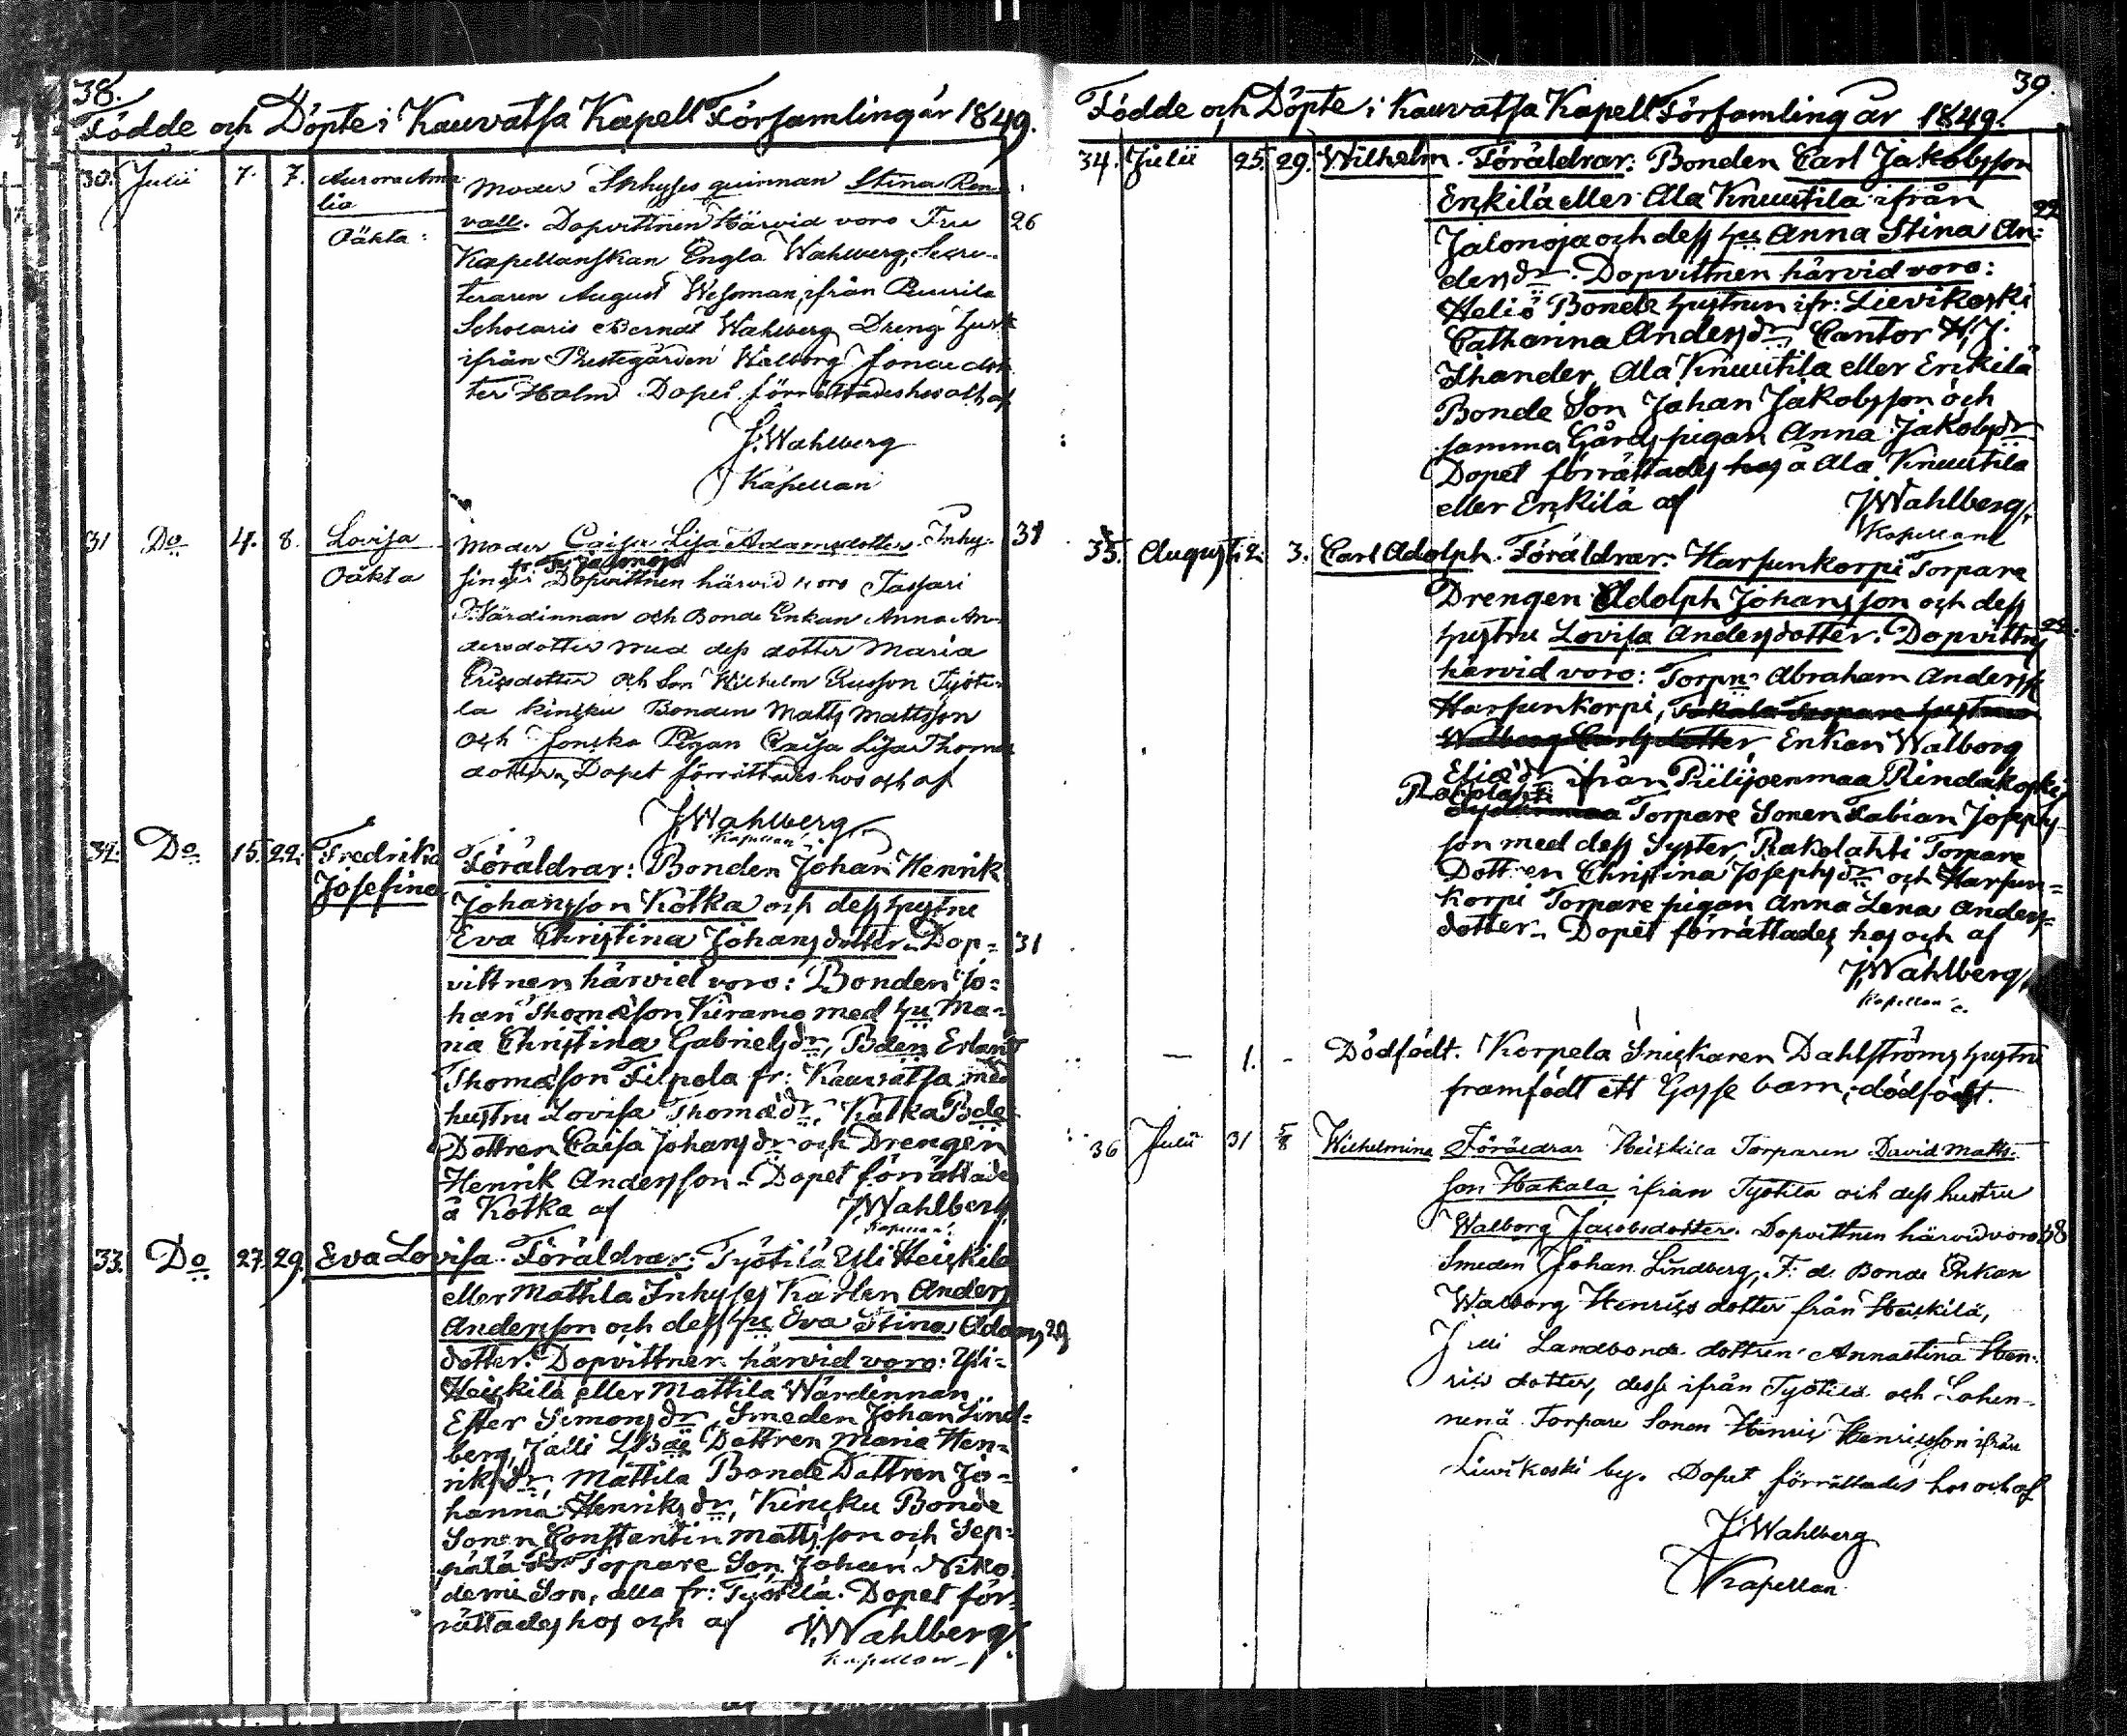 38.
Födde och Döpte i Kauvatsa Kapell Församling år 1849.
30. Julii 7. 7. Aurora Ama-
lia
Oäkta:
Moder Inhyses quinnan Stina Ren-
vall. Dopvittnen Härvid voro Fru 26
Kapellanskan Engla Wahlberg, Secre-
teraren August Wesman, ifrån Puurila
Scholaris Berndt Wahlberg Dreng hust:
ifrån Prestegården Walborg Jonaedot-
ter Holm. Dopet förrättades hos och af
J. Wahlberg
Kapellan
31 Do 4. 8. Lovisa
Oäkta
Moder Caisa Lisa Adamsdotter Inhy- 31
fr. Jalonoja
singe Dopvittnen härvid voro Tassari
Wärdinnan och Bonde Enkan Anna An-
dersdotter med dess dotter Maria
Ericsdotter och Son Wilhelm Ericsson Työti-
la Kinsku Bonden Matts Mattsson
och Jonska Pigan Caisa Lisa Thomæ
dotter, Dopet förrättades hos och af
J. Wahlberg
Kapellan
32. Do 15. 22. Fredrika
Josefina
Föräldrar: Bonden Johan Henrik
Johansson Kotka och dess hustru
Eva Christina Johansdotter. Dop- 31
vittnen härvid voro: Bonden Jo-
han Thomæson Kiramo med hu Ma-
ria Christina Gabrielsdr, Bden Erland
Thomæson Filpola fr: Kauvatsa med
hustru Lovisa Thomædr, Kotka Bde
Dottren Caisa Johansdr och Drengen
Henrik Andersson. Dopet förrättades
å Kotka af J. Wahlberg
Kapellan
33. Do 27. 29. Eva Lovisa. Föräldrar: Työtilä Ylli Heiskilä
eller Mattila Inhyses Karlen Anders
Andersson och dess hu Eva Stina Adams 29
dotter. Dopvittnen härvid voro: Yli-
Heiskilä eller Mattila Wärdinnan
Ester Simonsdr, Smeden Johan Lind-
berg, Jälli LBde Dottren Maria Hen-
riksdr, Mattila Bonde Dottren Jo-
hanna Henriksdr, Kinsku Bonde
Sonen Constantin Mattsson och Sep-
pälä Torpare Son Johan Niko-
demi Son, alla fr: Työtilä. Dopet för-
rättades hos och af J. Wahlberg
Kapellan
39.
Födde och Döpte i Kauvatsa Kapell Församling år 1849.
34. Julii 25. 29. Wilhelm. Föräldrar: Bonden Carl Jakobsson
Enkilä eller Ala Knuutila ifrån 22
Jalonoja och dess hu Anna Stina An-
dersdr. Dopvittnen härvid voro:
Heliö Bonde hustrun ifr: Lievikoski
Catharina Andersdr, Cantor H. J.
Thander, Ala Knuutila eller Enkilä
Bonde Son Johan Jakobsson och
samma Gårds pigan Anna Jakobsdr
Dopet förrättades hos å Ala Knuutila
eller Enkilä af J. Wahlberg
Kapellan
35. Augusti 2. 3. Carl Adolph. Föräldrar: Harsunkorpi Torpare
Drengen Adolph Johansson och dess
hustru Lovisa Andersdotter. Dopvittn 22.
härvid voro: Torpn Abraham Anderss
Harsunkorpi, Takala Torpare hustrun
Walborg Carlsdotter, Enkan Walborg
Eliædr ifrån Piilijoenmaa Rindakoski
Rakolahti Torpare Sonen Fabian Josephs
son med dess Syster, Rakolahti Torpare
Dottren Christina Josephsdr och Harsun-
korpi Torpare pigan Anna Lena Anders-
dotter. Dopet förrättades hos och af
J. Wahlberg
Kapellan
— 1. - Dödfödt. Korpela Snickaren Dahlströms hustru
framfödt ett Gosse barn; dödfödt.
36 Julii 31 5/8 Wilhelmina Föräldrar Heiskilä Torparen David Matts-
son Hakala ifrån Työtilä och dess hustru
Walborg Jacobsdotter. Dopvittnen härvid voro 38
Smeden Johan Lindberg, F. d. Bonde Enkan
Walborg Henricsdotter från Heiskilä,
Jälli Landbonde dottren Annastina Hen-
rics dotter, desse ifrån Työtilä och Lohen-
nenä Torpare Sonen Henric Henricsson ifrån
Lievikoski by. Dopet förrättades hos och af
J. Wahlberg
Kapellan